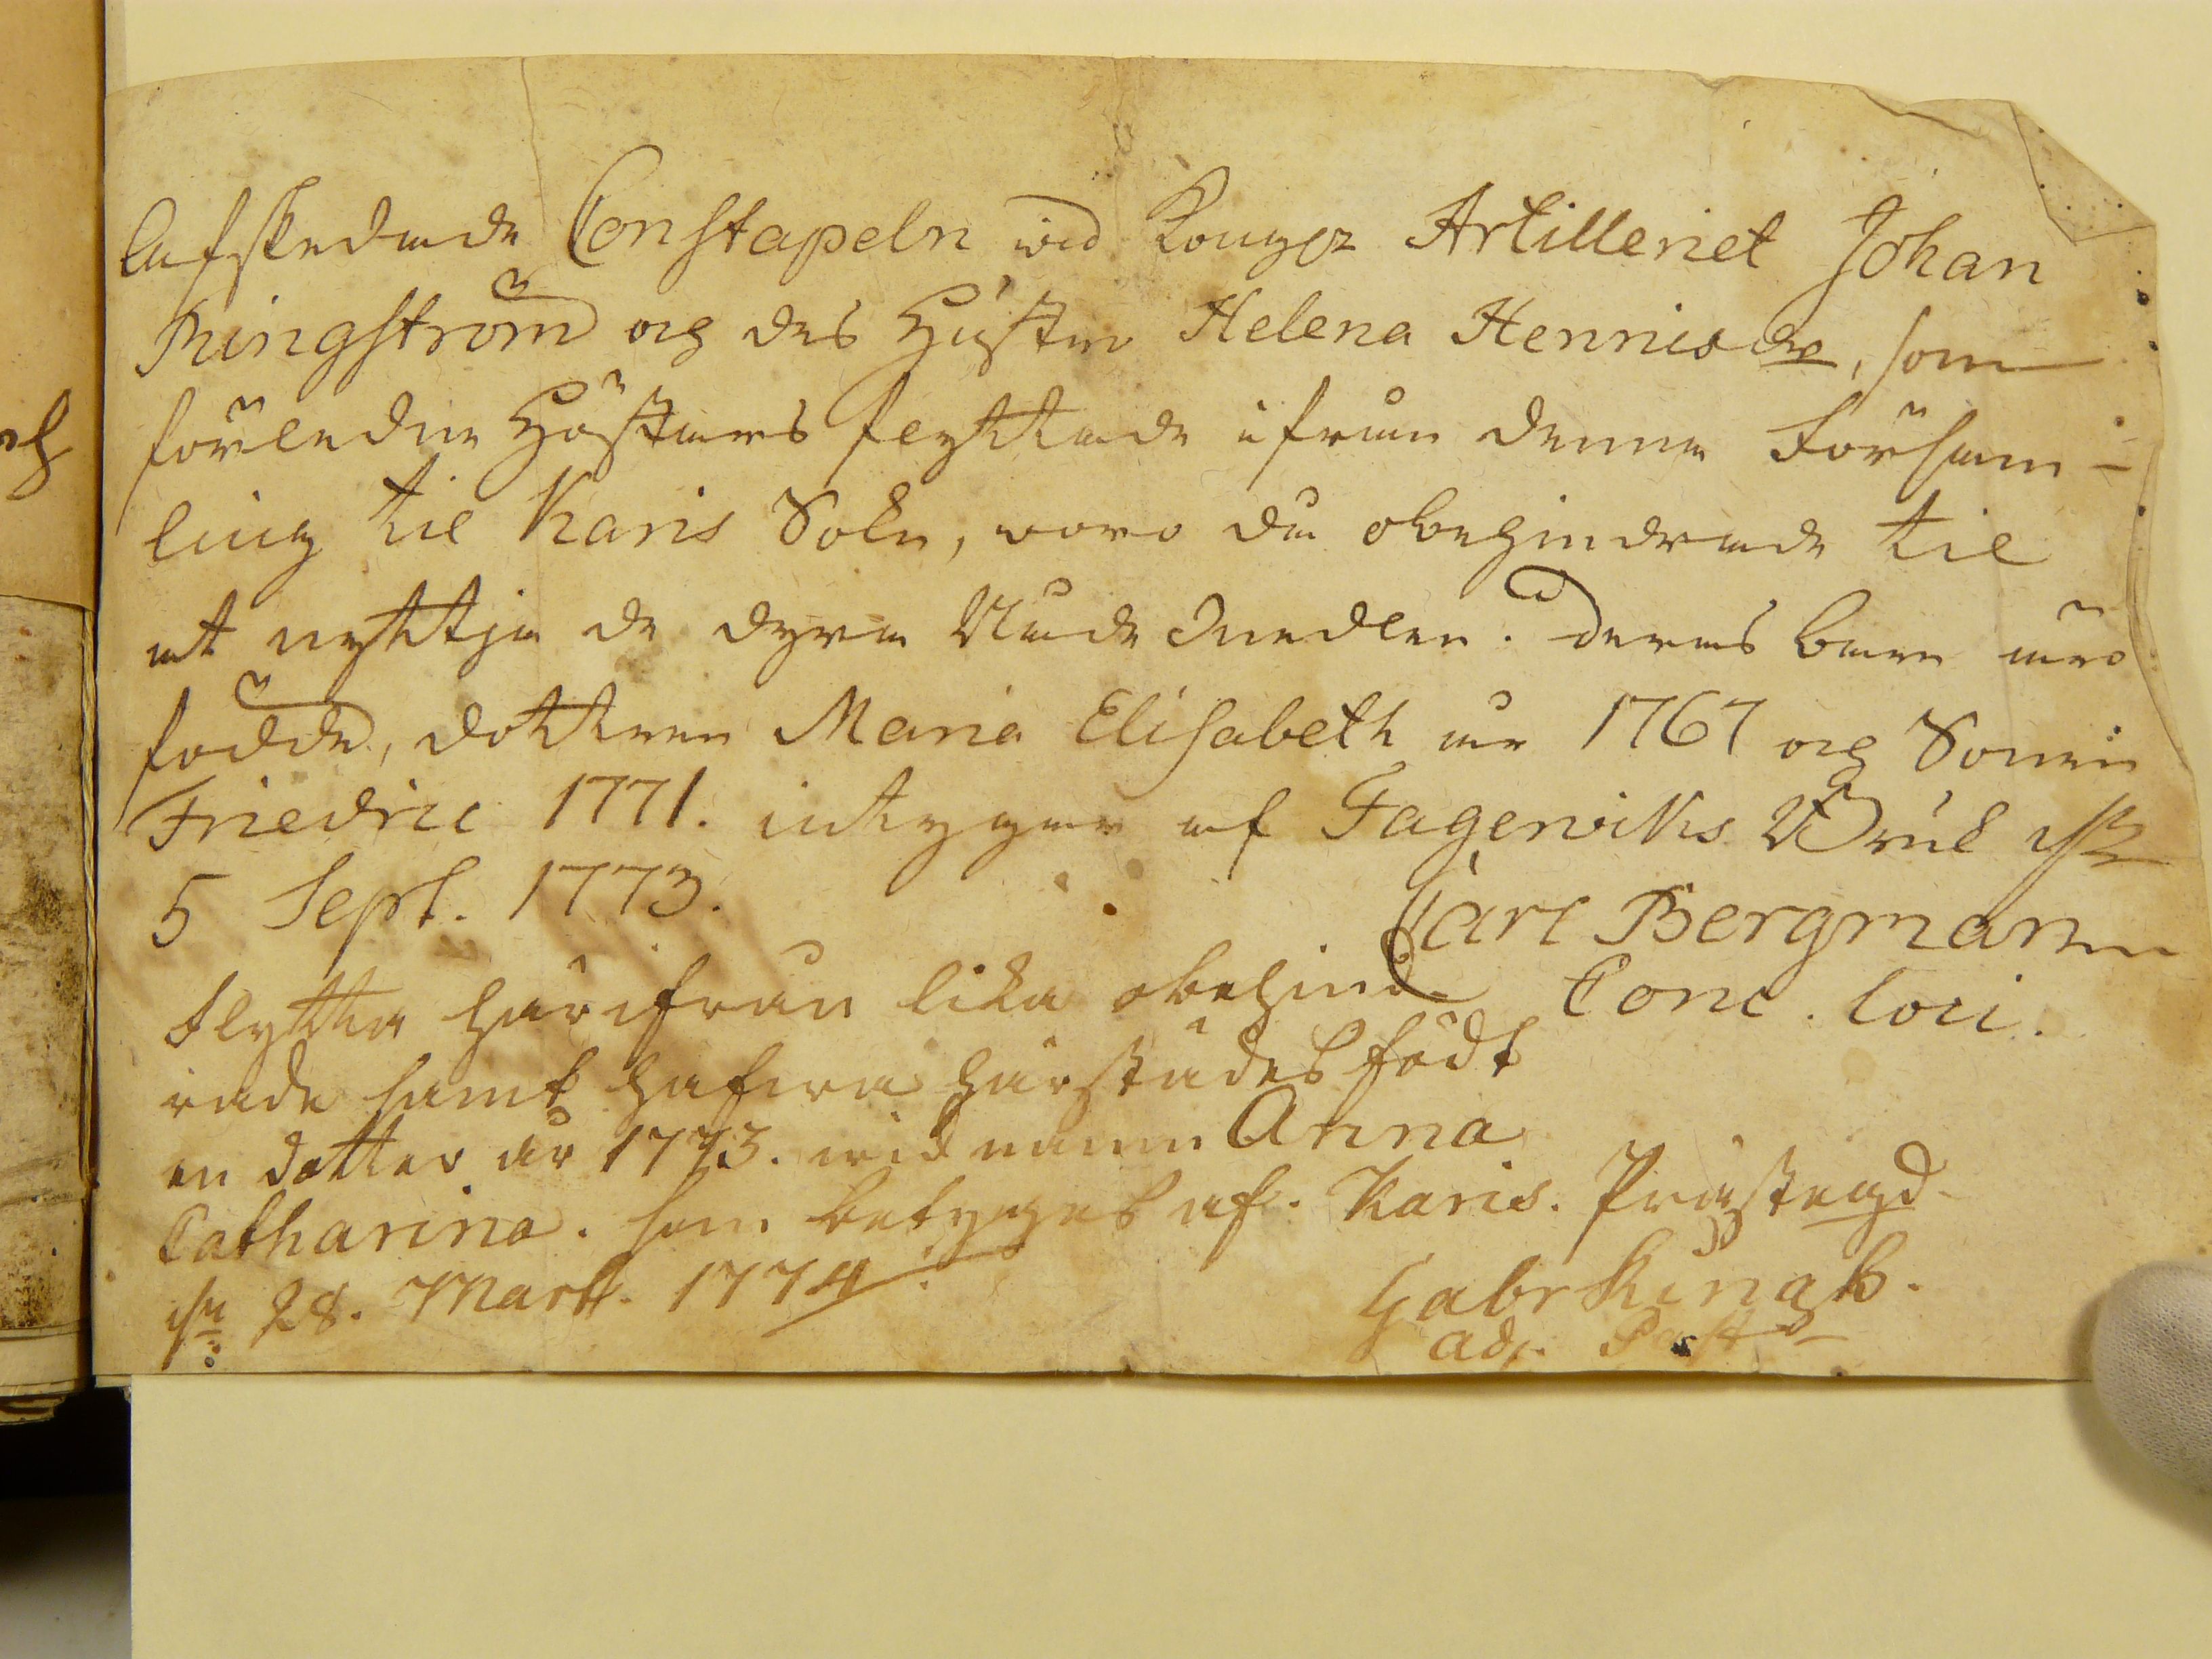 Afskedade Constapeln wid Kongl Artilleriet Johan
Ringström och des Hustru Helena Henricsdr, som
förledne Höstars flyttade ifrån denna Försam-
ling til Karis Sokn, voro då obehindrade til
at nyttja de dyra Nåde Medlen. deras barn äro
födde, dottren Maria Elisabeth år 1767 och Sonen
Friedric 1771. intygar af Fagerviks Bruk
5 Sept. 1773.
Carl Bergman
Conc. loci.
Flytta härifrån lika obehind
rade samt hafwa härstädes födt
en dotter år 1773. wid namn Anna
Catharina. som betyges af. Karis. Prästegd
28. Mart. 1774.
Gabr
adj. Past